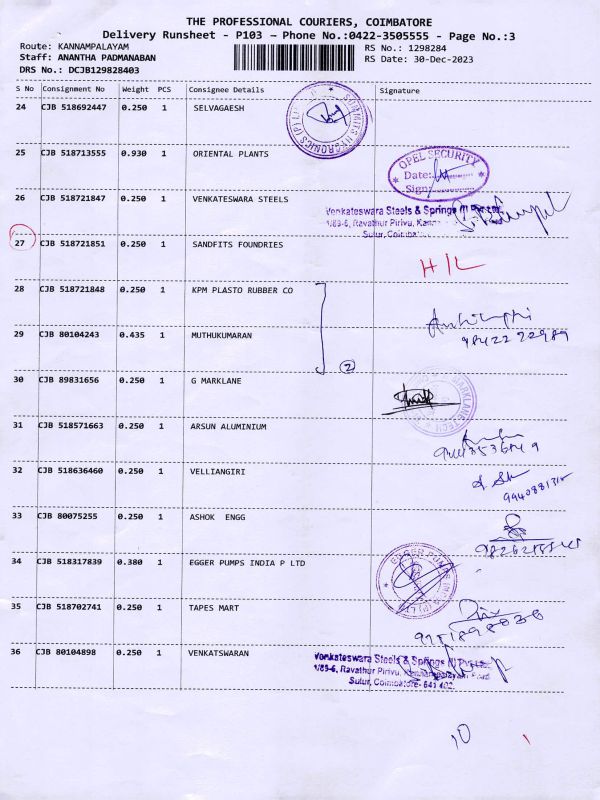 THE PROFESSIONAL COURIERS, COIMBATORE
Delivery Runsheet - P103 – Phone No.:0422-3505555 - Page No.:3
Route: KANNAMPALAYAM RS No.: 1298284
Staff: ANANTHA PADMANABAN RS Date: 30-Dec-2023
DRS No.: DCJB129828403
S No Consignment No Weight PCS Consignee Details Signature
24 CJB 518692447 0.250 1 SELVAGAESH
25 CJB 518713555 0.930 1 ORIENTAL PLANTS
OPEL SECURITY
Date:
Sign:
26 CJB 518721847 0.250 1 VENKATESWARA STEELS
Venkateswara Steels & Springs (I) Pvt Ltd.
1/89-6, Ravathur Pirivu,
Sulur, Coimbatore
27 CJB 518721851 0.250 1 SANDFITS FOUNDRIES
H/L
28 CJB 518721848 0.250 1 KPM PLASTO RUBBER CO
29 CJB 80104243 0.435 1 MUTHUKUMARAN
98422 22989
2
30 CJB 89831656 0.250 1 G MARKLANE
31 CJB 518571663 0.250 1 ARSUN ALUMINIUM
32 CJB 518636460 0.250 1 VELLIANGIRI
33 CJB 80075255 0.250 1 ASHOK ENGG
34 CJB 518317839 0.380 1 EGGER PUMPS INDIA P LTD
EGGER PUMPS
35 CJB 518702741 0.250 1 TAPES MART
36 CJB 80104898 0.250 1 VENKATSWARAN
Venkateswara Steels & Springs (I) Pvt Ltd.,
1/89-6, Ravathur Pirivu, Kannampalayam Road
Sulur, Coimbatore- 641 402.
10